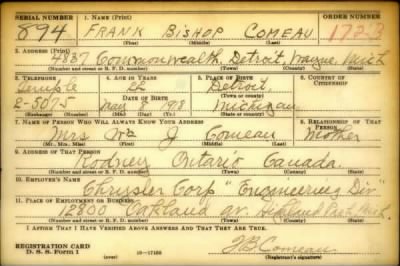 SERIAL NUMBER 1. NAME (Print) ORDER NUMBER
894 FRANK BISHOP COMEAU 1723
(First) (Middle) (Last)
2. ADDRESS (Print)
4837 Commonwealth, Detroit, Wayne, Mich
(Number and street or R. F. D. number) (Town) (County) (State)
3. TELEPHONE 4. AGE IN YEARS 5. PLACE OF BIRTH 6. COUNTRY OF CITIZENSHIP
Temple 22 Detroit,
DATE OF BIRTH (Town or county)
2-5075 May 8, 1918 Michigan
(Exchange) (Number) (Mo.) (Day) (Yr.) (State or country)
7. NAME OF PERSON WHO WILL ALWAYS KNOW YOUR ADDRESS 8. RELATIONSHIP OF THAT PERSON
Mrs Wm J Comeau Mother
(Mr., Mrs., Miss) (First) (Middle) (Last)
9. ADDRESS OF THAT PERSON
Rodney Ontario Canada.
(Number and street or R. F. D. number) (Town) (County) (State)
10. EMPLOYER'S NAME
Chrysler Corp "Engineering Div"
11. PLACE OF EMPLOYMENT OR BUSINESS
12800 Oakland av. Highland Park Mich.
(Number and street or R. F. D. number) (Town) (County) (State)
I AFFIRM THAT I HAVE VERIFIED ABOVE ANSWERS AND THAT THEY ARE TRUE.
REGISTRATION CARD
D. S. S. Form 1 (over) 16-17105 FBComeau
(Registrant's signature)